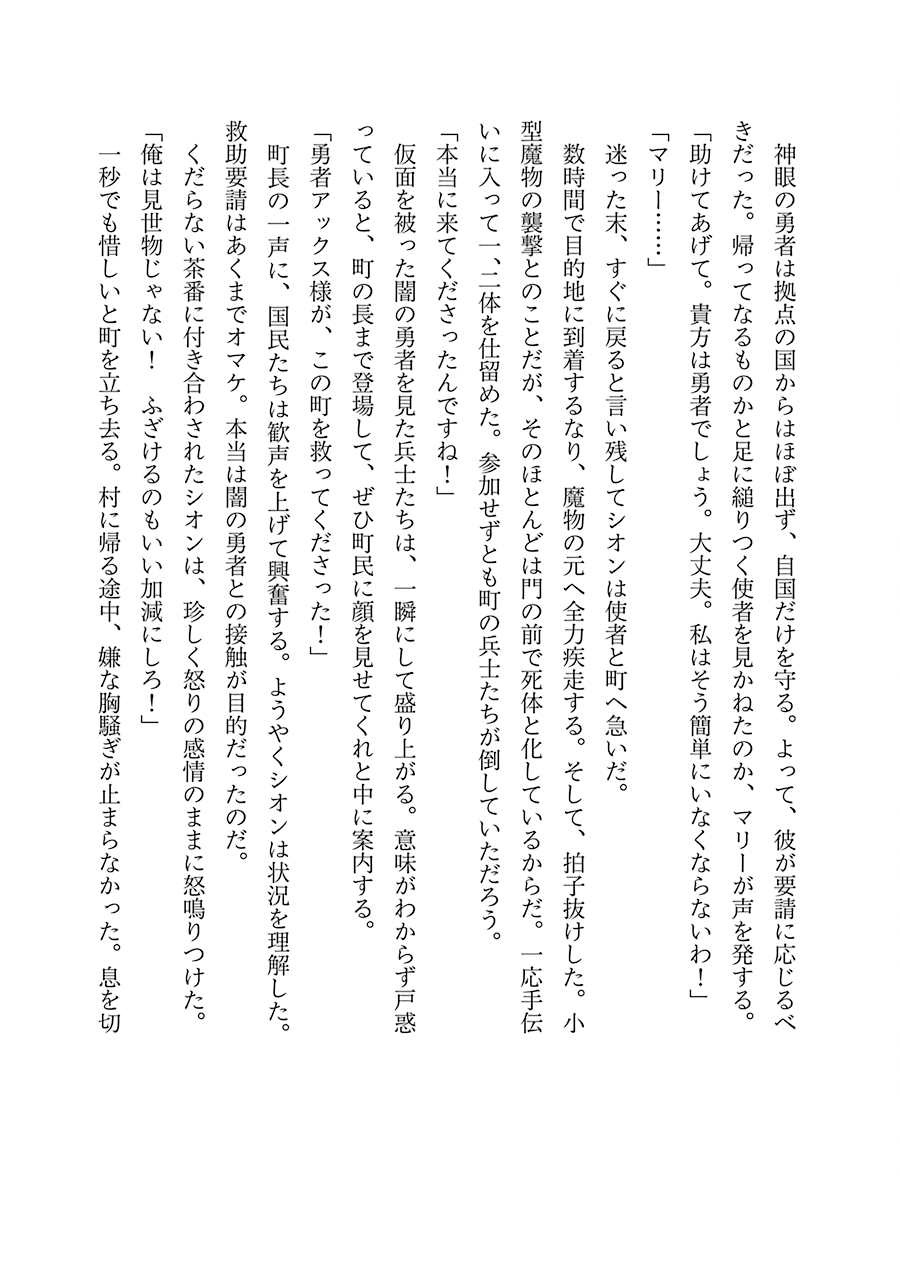 神眼の勇者は拠点の国からはほぼ出ず、自国だけを守る。よって、彼が要請に応じるべ
きだった。帰ってなるものかと足に縋りつく使者を見かねたのか、マリーが声を発する。
「助けてあげて。貴方は勇者でしょう。大丈夫。私はそう簡単にいなくならないわ！」
「マリー……」
　迷った末、すぐに戻ると言い残してシオンは使者と町へ急いだ。
　数時間で目的地に到着するなり、魔物の元へ全力疾走する。そして、拍子抜けした。小
型魔物の襲撃とのことだが、そのほとんどは門の前で死体と化しているからだ。一応手伝
いに入って一、二体を仕留めた。参加せずとも町の兵士たちが倒していただろう。
「本当に来てくださったんですね！」
　仮面を被った闇の勇者を見た兵士たちは、一瞬にして盛り上がる。意味がわからず戸惑
っていると、町の長まで登場して、ぜひ町民に顔を見せてくれと中に案内する。
「勇者アックス様が、この町を救ってくださった！」
　町長の一声に、国民たちは歓声を上げて興奮する。ようやくシオンは状況を理解した。
救助要請はあくまでオマケ。本当は闇の勇者との接触が目的だったのだ。
　くだらない茶番に付き合わされたシオンは、珍しく怒りの感情のままに怒鳴りつけた。
「俺は見世物じゃない！　ふざけるのもいい加減にしろ！」
　一秒でも惜しいと町を立ち去る。村に帰る途中、嫌な胸騒ぎが止まらなかった。息を切